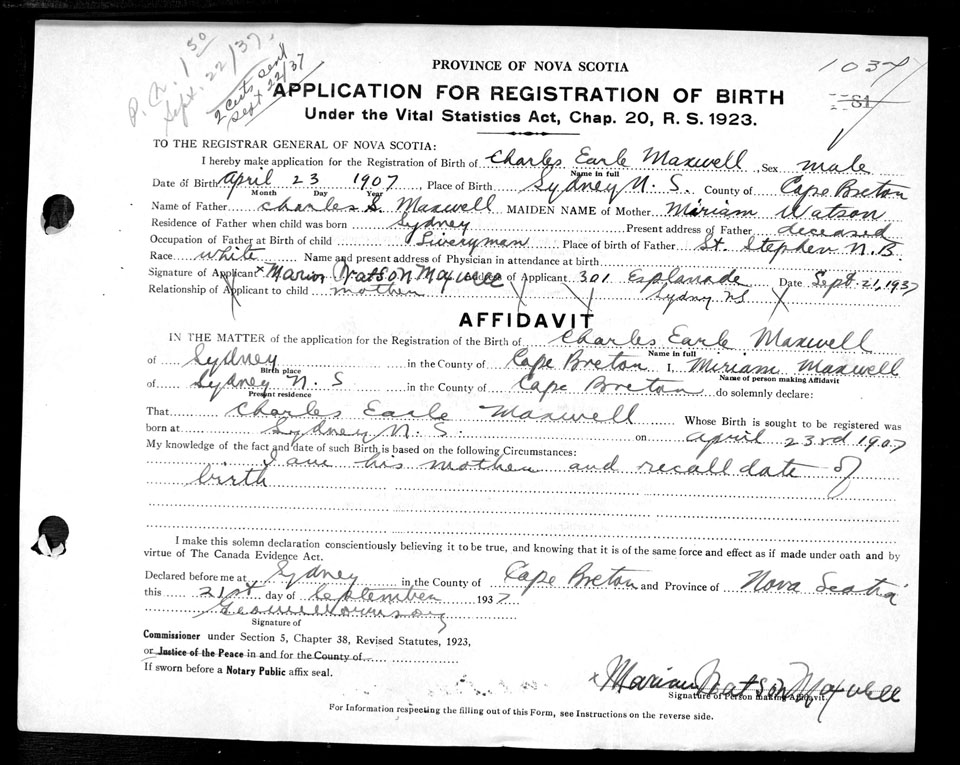 P. N. 1 50
Sept. 22/37.
2 Certs sent
Sept 22/37
1037
S1
PROVINCE OF NOVA SCOTIA
APPLICATION FOR REGISTRATION OF BIRTH
Under the Vital Statistics Act, Chap. 20, R. S. 1923.
TO THE REGISTRAR GENERAL OF NOVA SCOTIA:
I hereby make application for the Registration of Birth of Charles Earle Maxwell Sex male
Name in full
Date of Birth April 23 1907, Place of Birth Sydney N. S. County of Cape Breton
Month Day Year
Name of Father Charles S. Maxwell MAIDEN NAME of Mother Miriam Watson
Residence of Father when child was born Sydney Present address of Father deceased
Occupation of Father at Birth of child Liveryman Place of birth of Father St. Stephen N.B.
Race white Name and present address of Physician in attendance at birth
Signature of Applicant x Marion Watson Maxwell Address of Applicant 301 Esplanade Date Sept. 21, 1937
Relationship of Applicant to child mother Sydny NS
AFFIDAVIT
IN THE MATTER of the application for the Registration of the Birth of Charles Earle Maxwell
Name in full
of Sydney in the County of Cape Breton I, Miriam Maxwell
Birth place Name of person making Affidavit
of Sydney N. S in the County of Cape Breton do solemnly declare:
Present residence
That Charles Earle Maxwell Whose Birth is sought to be registered was
born at Sydney N. S. on April 23rd 1907
My knowledge of the fact and date of such Birth is based on the following Circumstances:
I am his mother and recall date of
birth
I make this solemn declaration conscientiously believing it to be true, and knowing that it is of the same force and effect as if made under oath and by
virtue of The Canada Evidence Act.
Declared before me at Sydney in the County of Cape Breton and Province of Nova Scotia
this 21st day of September 1937
Signature of
Commissioner under Section 5, Chapter 38, Revised Statutes, 1923,
or Justice of the Peace in and for the County of
If sworn before a Notary Public affix seal.
x Marion Watson Maxwell
Signature of Person making Affidavit.
For Information respecting the filling out of this Form, see Instructions on the reverse side.